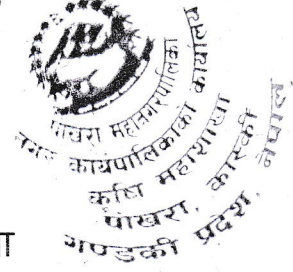 पोखरा महानगरपालिका
नगर कार्यपालिकाको कार्यालय
कृषि महाशाखा
पोखरा, कास्की
गण्डकी प्रदेश, नेपाल